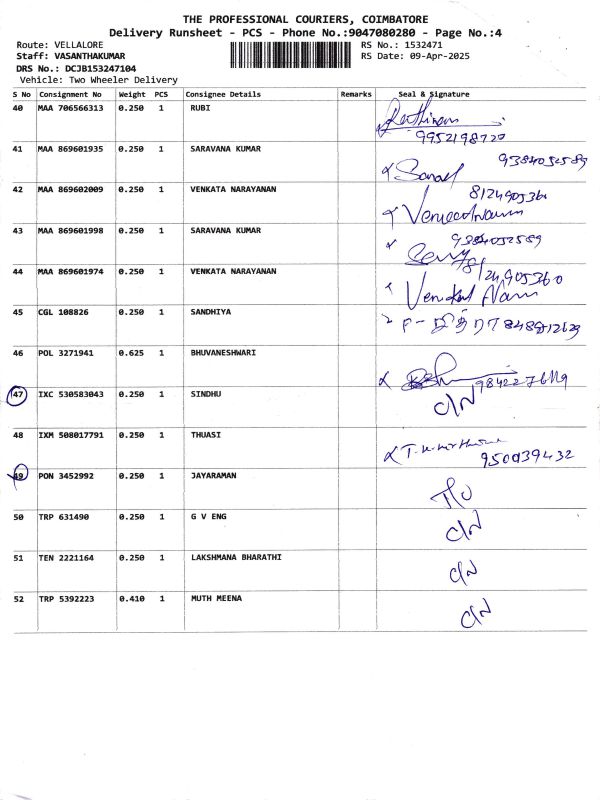 THE PROFESSIONAL COURIERS, COIMBATORE
Delivery Runsheet - PCS - Phone No.:9047080280 - Page No.:4
Route: VELLALORE RS No.: 1532471
Staff: VASANTHAKUMAR RS Date: 09-Apr-2025
DRS No.: DCJB153247104
Vehicle: Two Wheeler Delivery
S No Consignment No Weight PCS Consignee Details Remarks Seal & Signature
40 MAA 706566313 0.250 1 RUBI
9952198720
41 MAA 869601935 0.250 1 SARAVANA KUMAR 9384052589
42 MAA 869602009 0.250 1 VENKATA NARAYANAN 8124905360
43 MAA 869601998 0.250 1 SARAVANA KUMAR 9384052589
44 MAA 869601974 0.250 1 VENKATA NARAYANAN 8124905360
45 CGL 108826 0.250 1 SANDHIYA
46 POL 3271941 0.625 1 BHUVANESHWARI
47 IXC 530583043 0.250 1 SINDHU C/N
48 IXM 508017791 0.250 1 THUASI
49 PON 3452992 0.250 1 JAYARAMAN
50 TRP 631490 0.250 1 G V ENG C/N
51 TEN 2221164 0.250 1 LAKSHMANA BHARATHI C/N
52 TRP 5392223 0.410 1 MUTH MEENA C/N